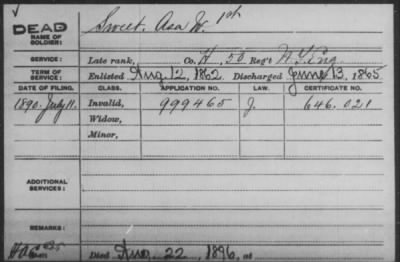 DEAD
NAME OF SOLDIER: Sweet, Asa W. 1st
SERVICE: Late rank, Co. H, 50 Reg't N.Y. Eng
TERM OF SERVICE: Enlisted Aug. 12, 1862 Discharged June 13, 1865
DATE OF FILING. CLASS. APPLICATION NO. LAW. CERTIFICATE NO.
1890. July 11. Invalid, 999465 J. 646.021
Widow,
Minor,
ADDITIONAL SERVICES:
REMARKS:
Died Aug. 22, 1896, at